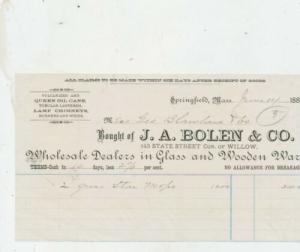 ALL CLAIMS TO BE MADE WITHIN SIX DAYS AFTER RECEIPT OF GOODS
VULCANIZED AND
QUEEN OIL CANS,
TUBULAR LANTERNS,
LAMP CHIMNEYS,
BURNERS AND WICKS.
Springfield, Mass June 188
M Geo
Bought of J. A. BOLEN & CO.
143 STATE STREET COR. OF WILLOW,
Wholesale Dealers in Glass and Wooden War
TERMS-Cash in days, less per cent. NO ALLOWANCE FOR BREAKAG
2 Gross Star Mops